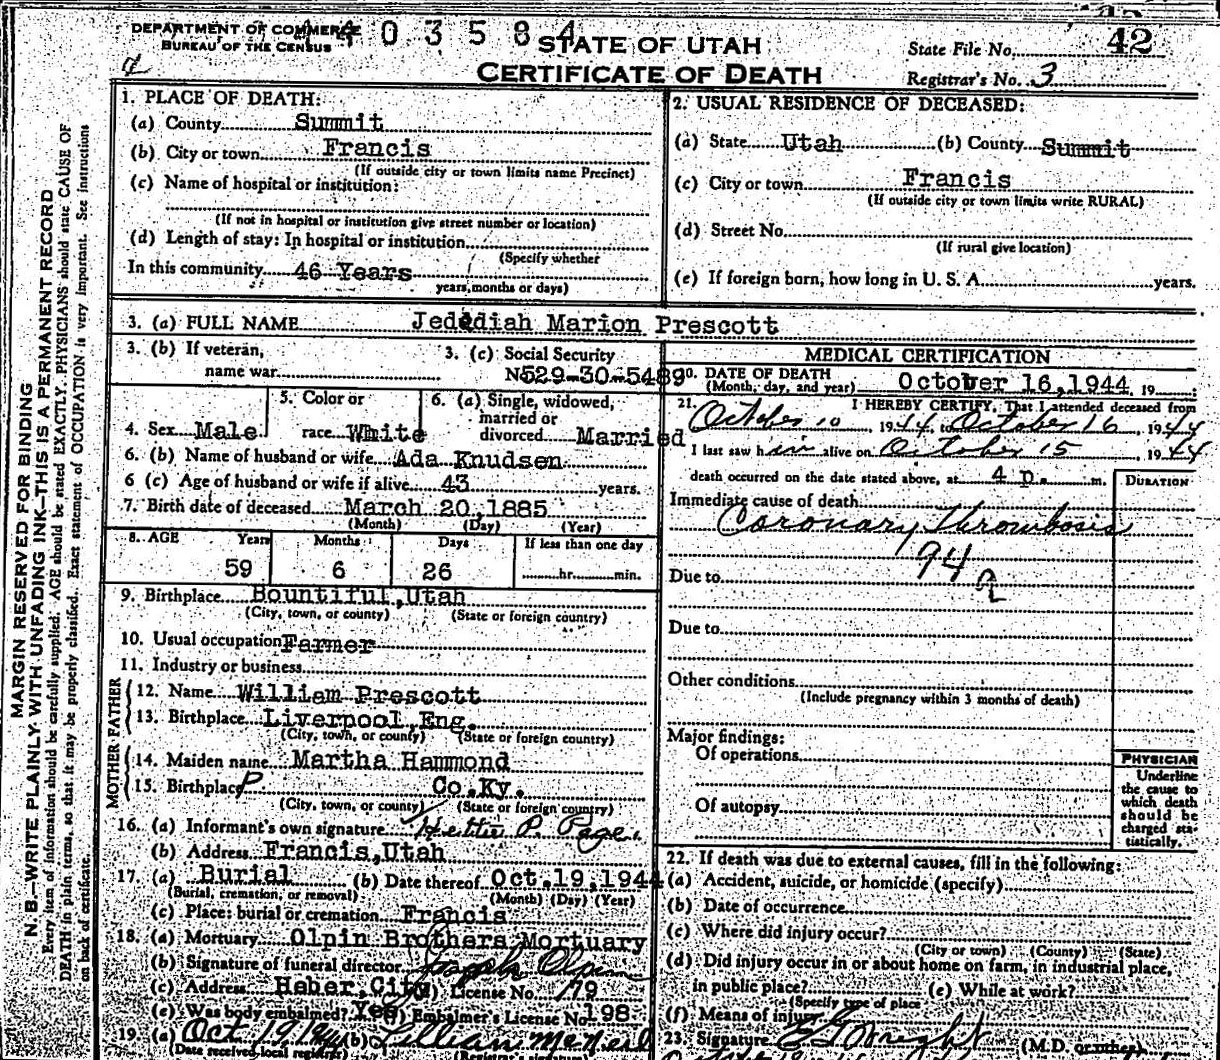 DEPARTMENT OF COMMERCE
BUREAU OF THE CENSUS
403584
STATE OF UTAH
CERTIFICATE OF DEATH
State File No. 42
Registrar's No. 3
MARGIN RESERVED FOR BINDING
N. B.—WRITE PLAINLY, WITH UNFADING INK—THIS IS A PERMANENT RECORD
Every item of information should be carefully supplied. AGE should be stated EXACTLY. PHYSICIANS should state CAUSE OF
DEATH in plain terms, so that it may be properly classified. Exact statement of OCCUPATION is very important. See instructions
on back of certificate.
1. PLACE OF DEATH:
(a) County Summit
(b) City or town Francis
(If outside city or town limits name Precinct)
(c) Name of hospital or institution:
(If not in hospital or institution give street number or location)
(d) Length of stay: In hospital or institution
(Specify whether
In this community 46 Years
years, months or days)
2. USUAL RESIDENCE OF DECEASED:
(a) State Utah (b) County Summit
(c) City or town Francis
(If outside city or town limits write RURAL)
(d) Street No.
(If rural give location)
(e) If foreign born, how long in U. S. A. years.
3. (a) FULL NAME Jedediah Marion Prescott
3. (b) If veteran,
name war
3. (c) Social Security
No 529-30-5489
4. Sex Male
5. Color or
race White
6. (a) Single, widowed,
married or
divorced Married
6. (b) Name of husband or wife Ada Knudsen
6 (c) Age of husband or wife if alive 43 years.
7. Birth date of deceased March 20,1885
(Month) (Day) (Year)
8. AGE Years Months Days If less than one day
59 6 26 hr. min.
9. Birthplace Bountiful,Utah
(City, town, or county) (State or foreign country)
10. Usual occupation Farmer
11. Industry or business
FATHER
12. Name William Prescott
13. Birthplace Liverpool,Eng.
(City, town, or county) (State or foreign country)
MOTHER
14. Maiden name Martha Hammond
15. Birthplace Co.Ky.
(City, town, or county) (State or foreign country)
16. (a) Informant's own signature Hettie P. Page
(b) Address Francis,Utah
17. (a) Burial (b) Date thereof Oct.19,1944
(Burial, cremation, or removal) (Month) (Day) (Year)
(c) Place: burial or cremation Francis
18. (a) Mortuary Olpin Brothers Mortuary
(b) Signature of funeral director Joseph Olpin
(c) Address Heber City (d) License No. 179
(e) Was body embalmed? Yes (f) Embalmer's License No. 198
19. (a) Oct 19, 1944 (b) Lillian McNeil
(Date received local registrar) (Registrar's signature)
MEDICAL CERTIFICATION
20. DATE OF DEATH
(Month, day, and year) October 16,1944 19
21. I HEREBY CERTIFY, That I attended deceased from
October 10, 1944, to October 16, 1944
I last saw him alive on October 15, 1944
death occurred on the date stated above, at 4 p. m.
DURATION
Immediate cause of death
Coronary Thrombosis
94a
Due to
Due to
Other conditions
(Include pregnancy within 3 months of death)
Major findings:
Of operations
Of autopsy
PHYSICIAN
Underline
the cause to
which death
should be
charged sta-
tistically.
22. If death was due to external causes, fill in the following:
(a) Accident, suicide, or homicide (specify)
(b) Date of occurrence
(c) Where did injury occur?
(City or town) (County) (State)
(d) Did injury occur in or about home on farm, in industrial place,
in public place? (e) While at work?
(Specify type of place
(f) Means of injury
23. Signature Wright (M.D. or other)